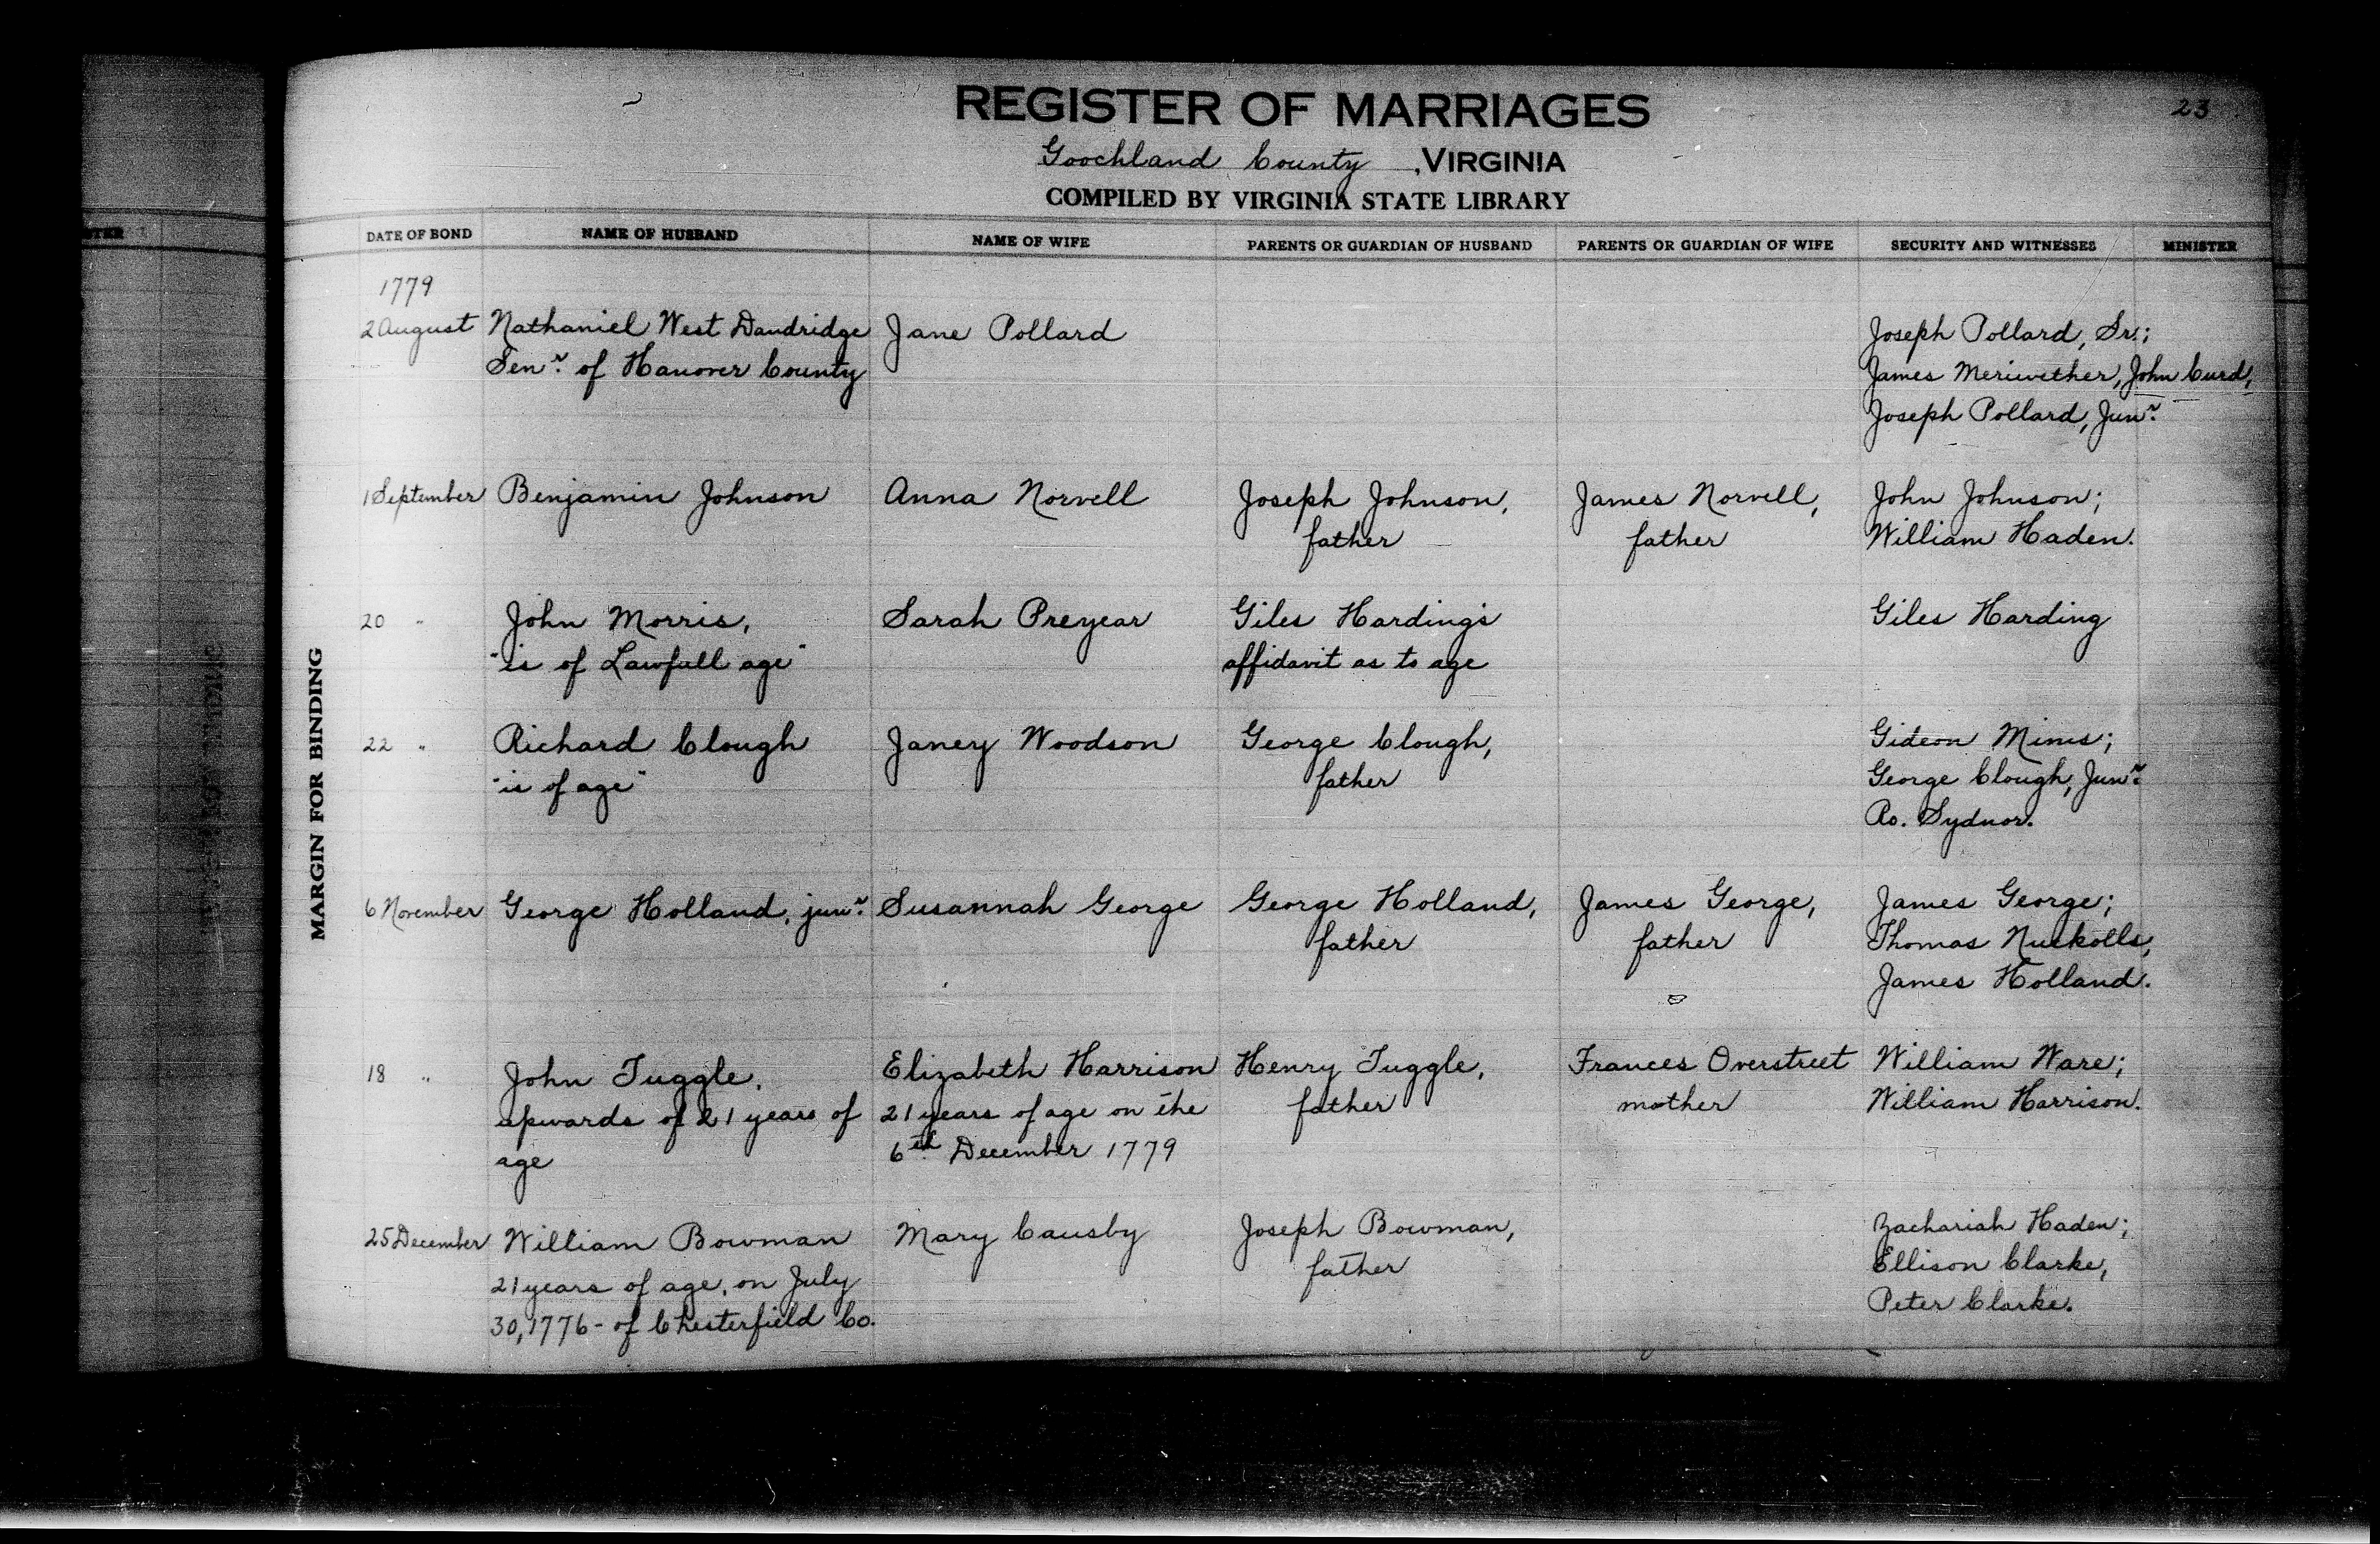 23
REGISTER OF MARRIAGES
Goochland County, VIRGINIA
COMPILED BY VIRGINIA STATE LIBRARY
DATE OF BOND NAME OF HUSBAND NAME OF WIFE PARENTS OR GUARDIAN OF HUSBAND PARENTS OR GUARDIAN OF WIFE SECURITY AND WITNESSES MINISTER
1779
2 August Nathaniel West Dandridge Jane Pollard Joseph Pollard, Sr.;
Senr. of Hanover County James Meriwether, John Curd,
Joseph Pollard, Junr.
1 September Benjamin Johnson Anna Norvell Joseph Johnson, James Norvell, John Johnson;
father father William Haden.
20 " John Morris, Sarah Preyear Giles Harding's Giles Harding
"is of Lawfull age" affidavit as to age
22 " Richard Clough Janey Woodson George Clough, Gideon Mims;
"is of age" father George Clough, Junr.
Ro. Sydnor.
6 November George Holland, junr. Susannah George George Holland, James George, James George;
father father Thomas Nuckolls,
James Holland.
18 " John Tuggle, Elizabeth Harrison Henry Tuggle, Frances Overstreet William Ware;
upwards of 21 years of 21 years of age on the father mother William Harrison.
age 6th December 1779
25 December William Bowman Mary Causby Joseph Bowman, Zachariah Haden;
21 years of age, on July father Ellison Clarke,
30, 1776 - of Chesterfield Co. Peter Clarke.
MARGIN FOR BINDING